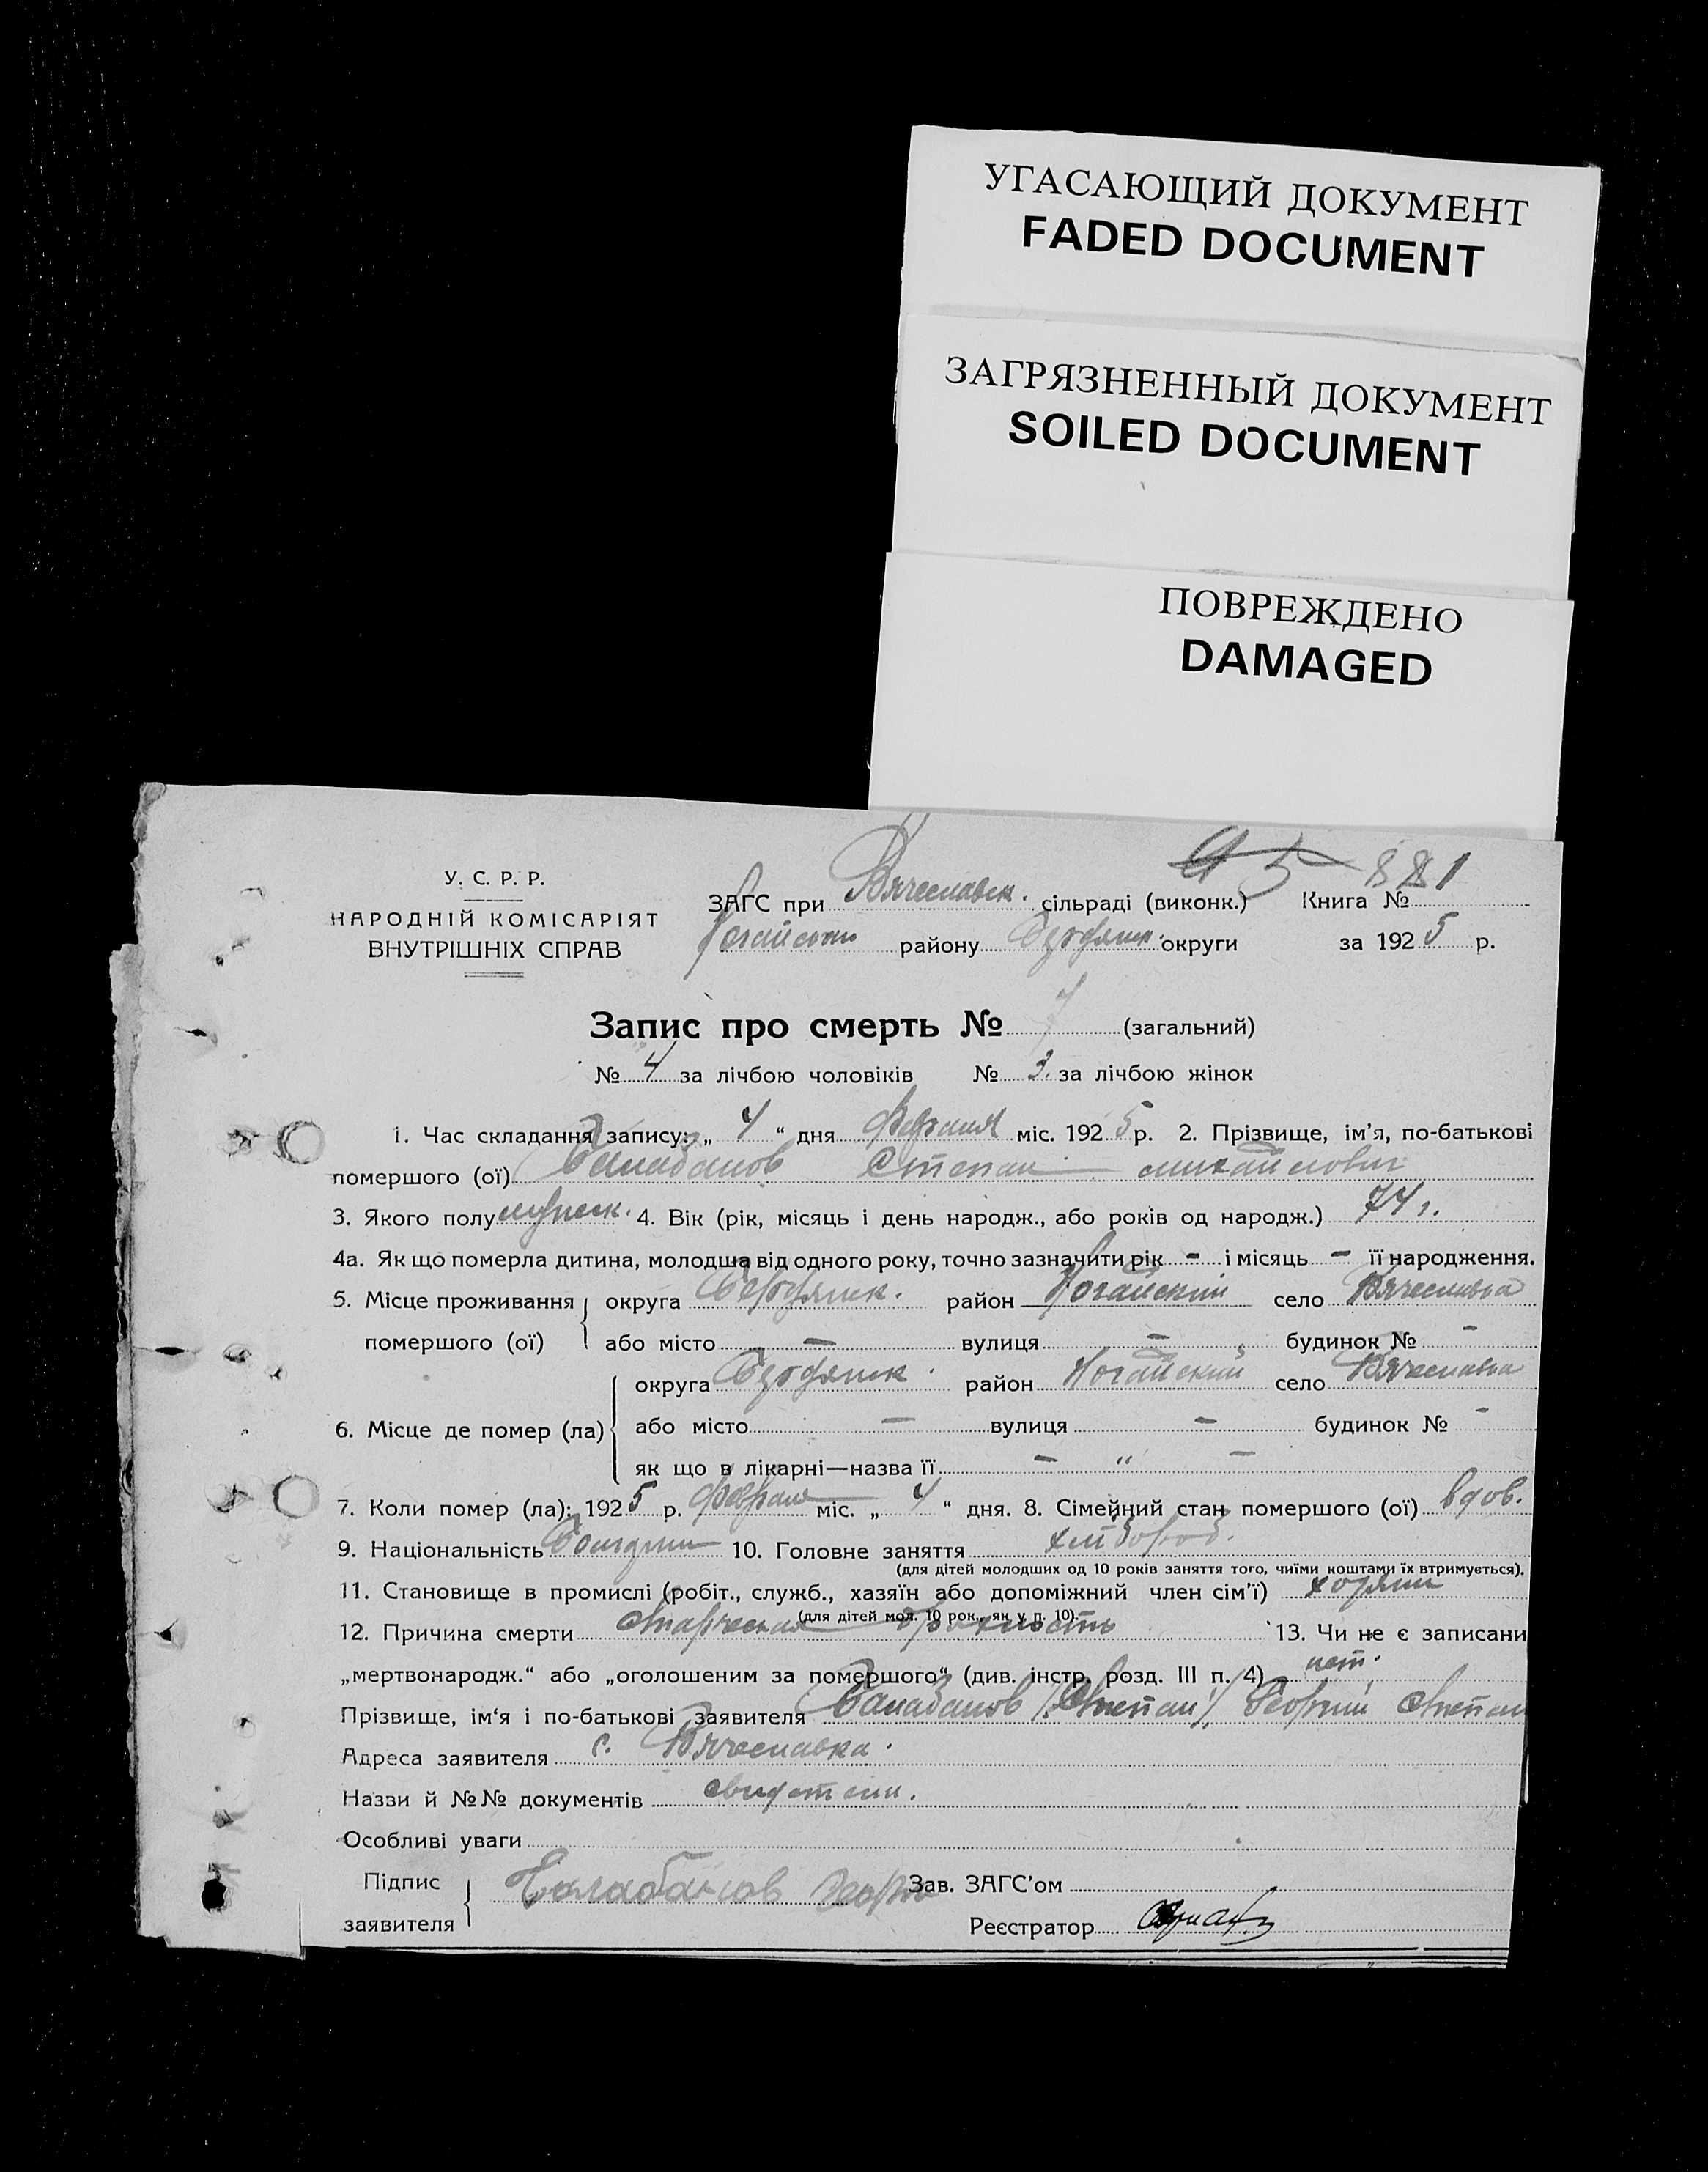 УГАСАЮЩИЙ ДОКУМЕНТ
FADED DOCUMENT
ЗАГРЯЗНЕННЫЙ ДОКУМЕНТ
SOILED DOCUMENT
ПОВРЕЖДЕНО
DAMAGED
881
У. С. Р. Р.
НАРОДНІЙ КОМІСАРІЯТ
ВНУТРІШНІХ СПРАВ
ЗАГС при Вячеславск. сільраді (виконк.) Книга №
району Бердянск. округи за 1925 р.
Запис про смерть № 7 (загальний)
№ 4 за лічбою чоловіків № 3. за лічбою жінок
1. Час складання запису: „ 4 “ дня февраля міс. 1925 р. 2. Прізвище, ім’я, по-батькові
помершого (ої) Балабанов Степан михайлович
3. Якого полу мужеск. 4. Вік (рік, місяць і день народж., або років од народж.) 74 г.
4а. Як що померла дитина, молодша від одного року, точно зазначити рік - і місяць - її народження.
5. Місце проживання округа Бердянск. район Ногайский село Вячеславка
помершого (ої) або місто — вулиця — будинок № -
округа Бердянск. район Ногайский село Вячеславка
6. Місце де помер (ла) або місто — вулиця — будинок № -
як що в лікарні—назва її — “ —
7. Коли помер (ла): 1925 р. февраля міс. „ 4 “ дня. 8. Сімейний стан помершого (ої) вдов.
9. Національність 10. Головне заняття хлібороб.
(для дітей молодших од 10 років заняття того, чиїми коштами їх втримується).
11. Становище в промислі (робіт., служб., хазяїн або допоміжний член сім’ї)
(для дітей мол. 10 рок., як у п. 10).
12. Причина смерти старческая дряхлость 13. Чи не є записани
„мертвонародж.“ або „оголошеним за помершого“ (див. інстр. розд. III п. 4) нет.
Прізвище, ім‘я і по-батькові заявителя Балабанов /Степан/ Георгий Степан
Адреса заявителя с. Вячеславка.
Назви й №№ документів
Особливі уваги
Підпис
заявителя Балабанов Зав. ЗАГС’ом
Реєстратор